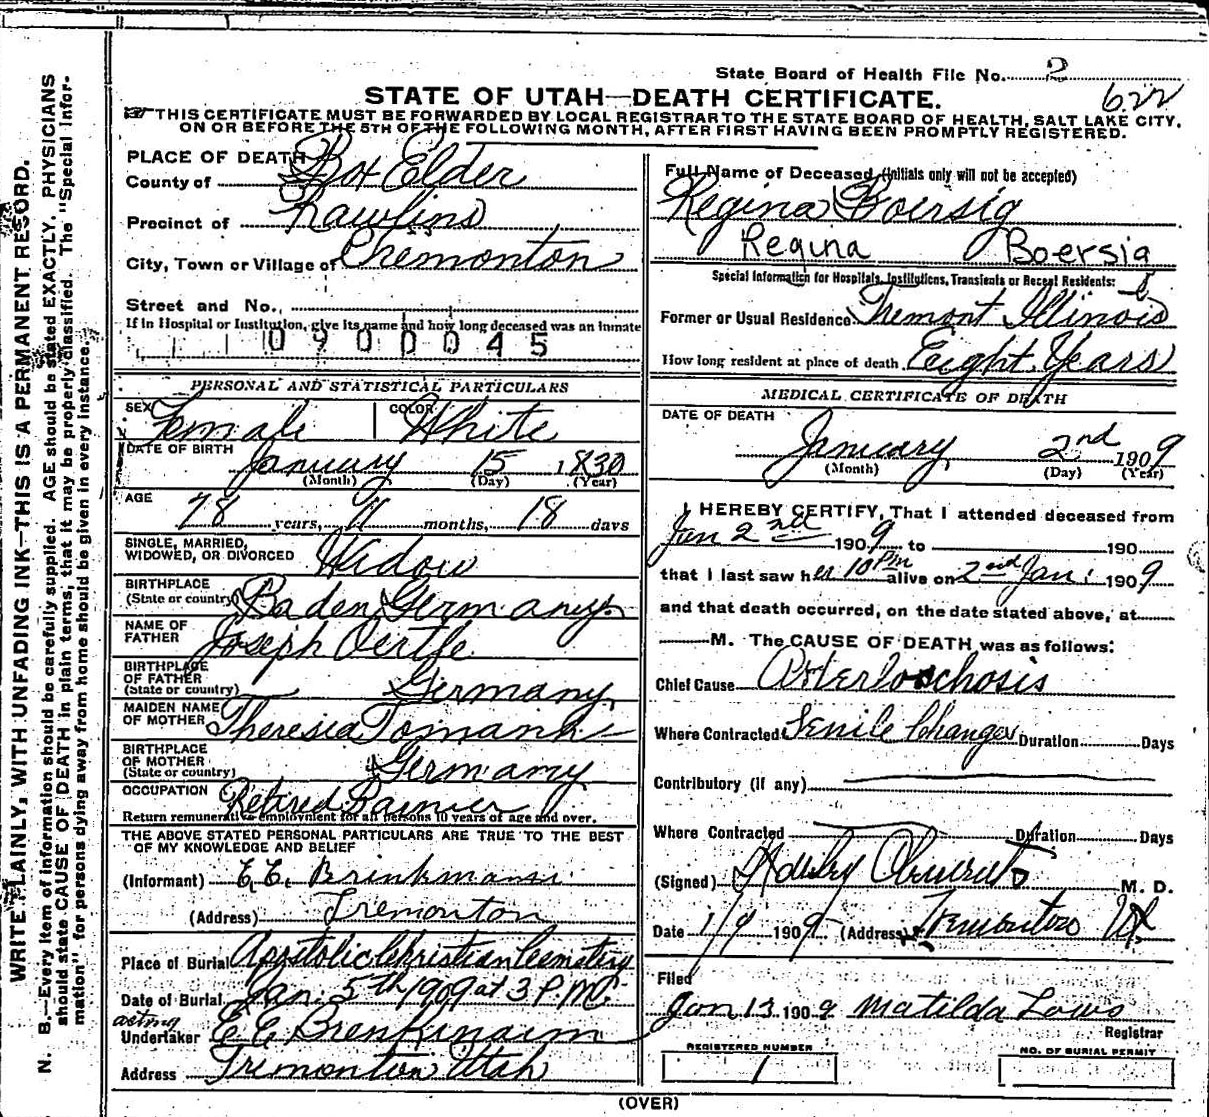 State Board of Health File No. 2
622
STATE OF UTAH—DEATH CERTIFICATE.
THIS CERTIFICATE MUST BE FORWARDED BY LOCAL REGISTRAR TO THE STATE BOARD OF HEALTH, SALT LAKE CITY,
ON OR BEFORE THE 5TH OF THE FOLLOWING MONTH, AFTER FIRST HAVING BEEN PROMPTLY REGISTERED.
WRITE PLAINLY, WITH UNFADING INK—THIS IS A PERMANENT RECORD.
N. B.—Every item of information should be carefully supplied. AGE should be stated EXACTLY. PHYSICIANS
should state CAUSE OF DEATH in plain terms, that it may be properly classified. The "Special Infor-
mation" for persons dying away from home should be given in every instance.
PLACE OF DEATH
County of Box Elder
Precinct of Rawlins
City, Town or Village of Tremonton
Street and No.
If in Hospital or Institution, give its name and how long deceased was an inmate
0900045
PERSONAL AND STATISTICAL PARTICULARS
SEX Female COLOR White
DATE OF BIRTH January 15 1830
(Month) (Day) (Year)
AGE
78 years, 11 months, 18 days
SINGLE, MARRIED,
WIDOWED, OR DIVORCED Widow
BIRTHPLACE
(State or country) Baden Germany
NAME OF
FATHER Joseph Oertle
BIRTHPLACE
OF FATHER
(State or country) Germany
MAIDEN NAME
OF MOTHER Theresia
BIRTHPLACE
OF MOTHER
(State or country) Germany
OCCUPATION Retired
Return remunerative employment for all persons 10 years of age and over.
THE ABOVE STATED PERSONAL PARTICULARS ARE TRUE TO THE BEST
OF MY KNOWLEDGE AND BELIEF
(Informant) E. E. Brinkman
(Address) Tremonton
Place of Burial Apostolic Christian Cemetery
Date of Burial Jan. 5th 1909 at 3 P.M.
acting
Undertaker E E
Address Tremonton Utah
Full Name of Deceased (Initials only will not be accepted)
Regina Boersig
Regina Boersig
Special Information for Hospitals, Institutions, Transients or Recent Residents:
Former or Usual Residence Tremont Illinois
How long resident at place of death Eight Years
MEDICAL CERTIFICATE OF DEATH
DATE OF DEATH
January 2nd 1909
(Month) (Day) (Year)
I HEREBY CERTIFY, That I attended deceased from
Jan 2nd 1909 to 190
that I last saw her 10 Pm alive on 2nd Jan. 1909
and that death occurred, on the date stated above, at
M. The CAUSE OF DEATH was as follows:
Chief Cause
Where Contracted Senile Changes Duration Days
Contributory (if any)
Where Contracted Duration Days
(Signed) M. D.
Date 1/9 1909 (Address) Tremonton Ut
Filed
Jan 13 1909 Matilda
Registrar
REGISTERED NUMBER
1
NO. OF BURIAL PERMIT
(OVER)